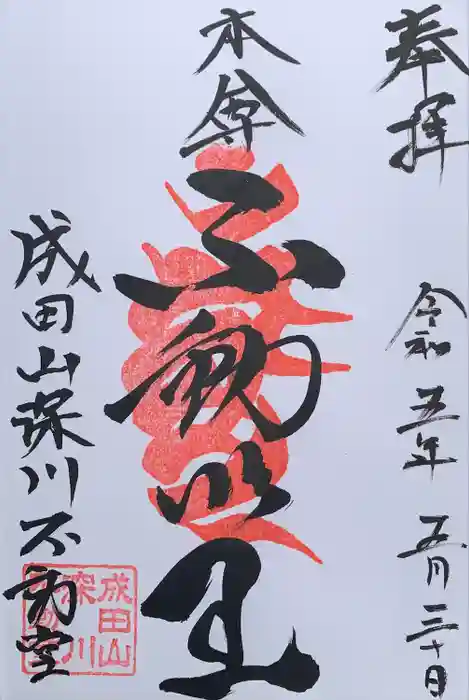 奉拝
令和五年五月三十日
本尊
不動明王
成田山深川不動堂
成田山
深川